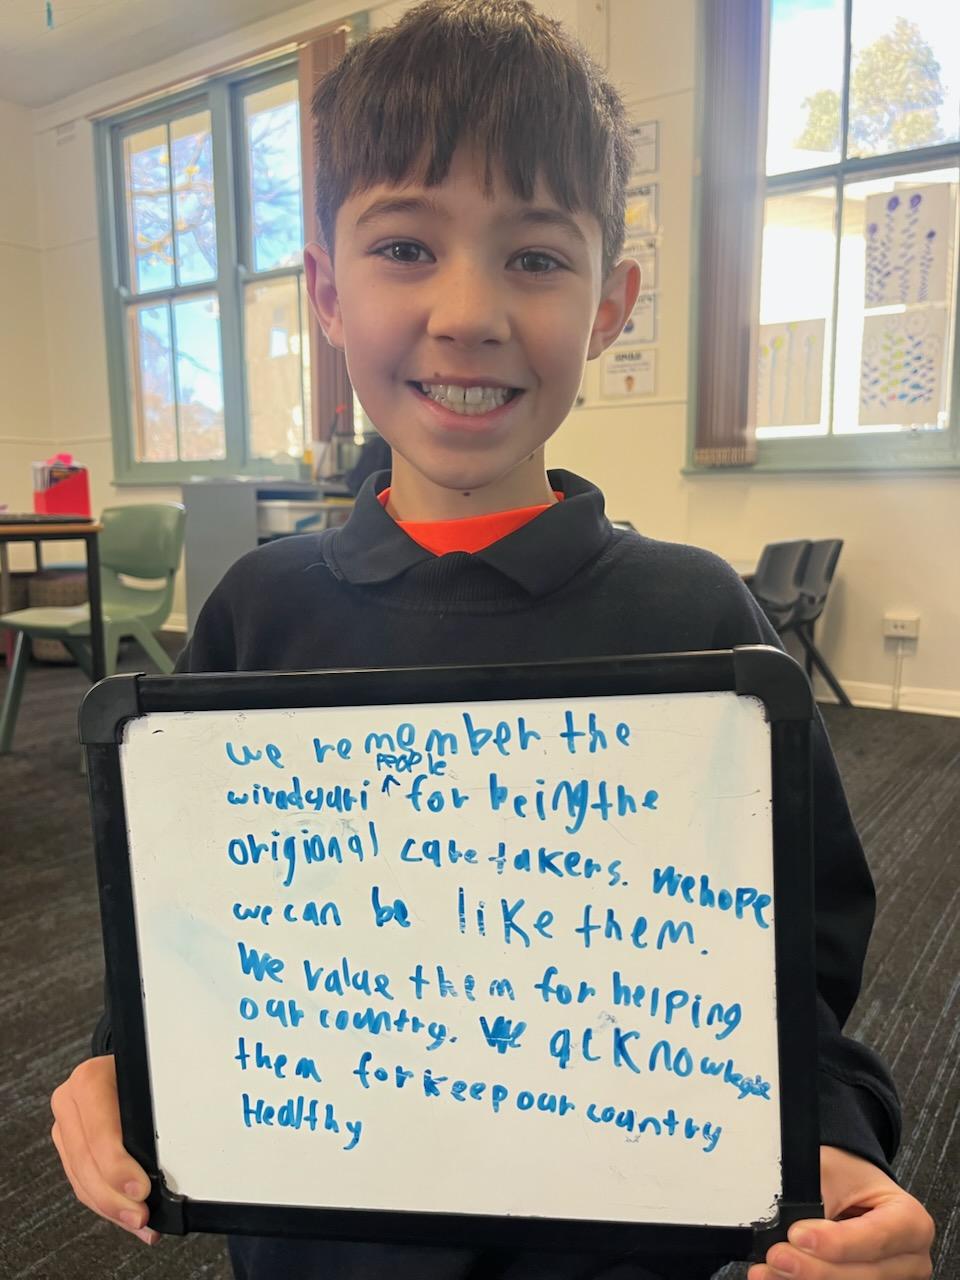 we remember the
wiradyuri people for being the
origional caretakers. We hope
we can be like them.
We value them for helping
our country. We acknowlegde
them for keep our country
Healthy